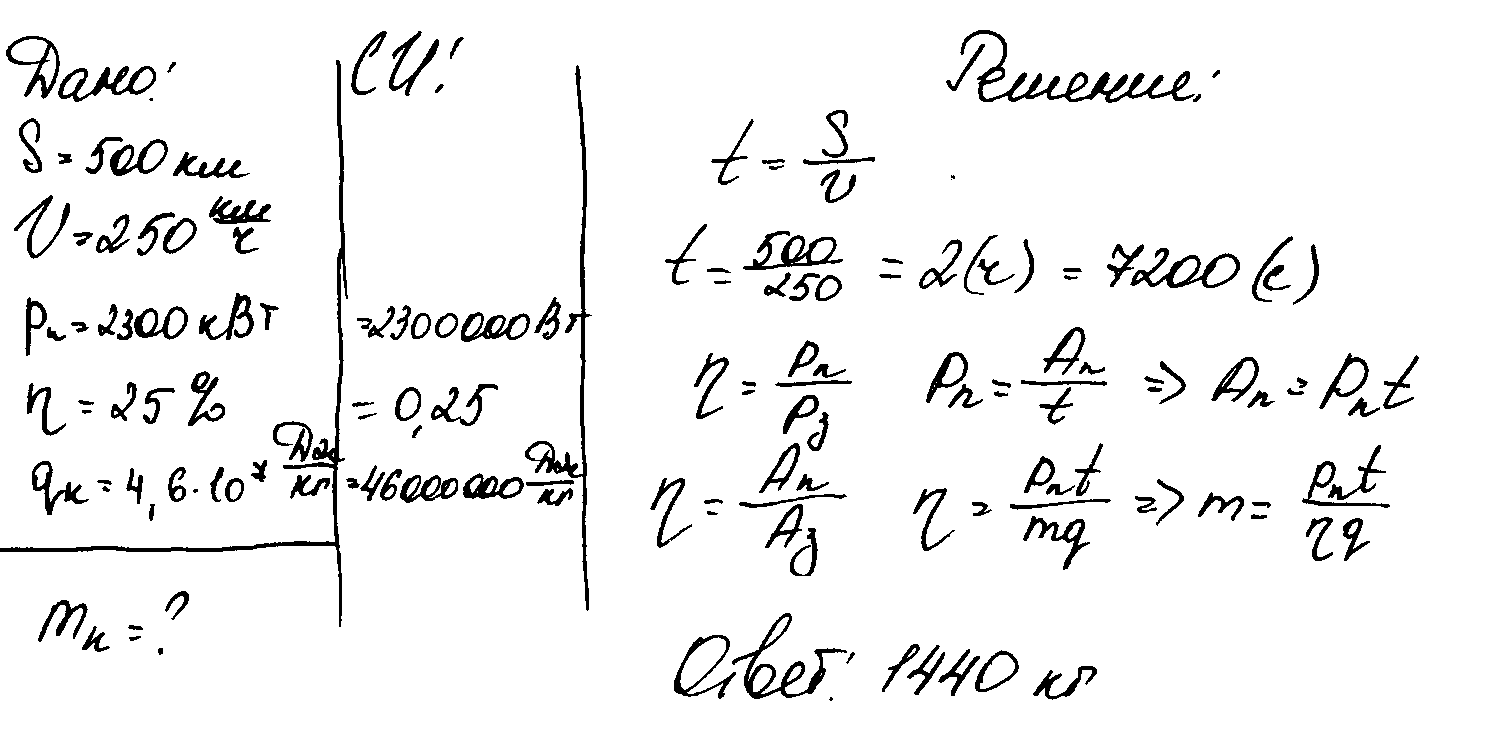 Дано:
S = 500 км
V = 250 км/ч
Pп = 2300 кВт
η = 25 %
qк = 4,6·10⁷ Дж/кг
mк = ?
СИ:
= 2300000 Вт
= 0,25
= 46000000 Дж/кг
Решение:
t = S/v
t = 500/250 = 2(ч) = 7200 (с)
η = Pп/Pз Pп = Aп/t => Aп = Pпt
η = Aп/Aз η = Pпt/mq => m = Pпt/ηq
Ответ: 1440 кг